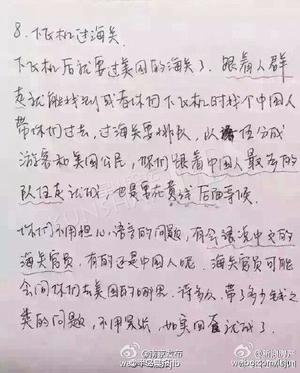 8. 下飞机过海关.
下飞机后就要过美国的海关了. 跟着人群
走就能找到或者你们下飞机时找个中国人
带你们过去, 过海关要排队, 队伍分成
游客和美国公民, 你们跟着中国人最多的
队伍走就成, 也是要在黄线后面等候.
你们不用担心语言的问题, 有会说中文的
海关官员, 有的还是中国人呢. 海关官员可能
会问你们去美国的哪里. 待多久, 带了多少钱之
类的问题, 不用紧张, 如实回答就成了.